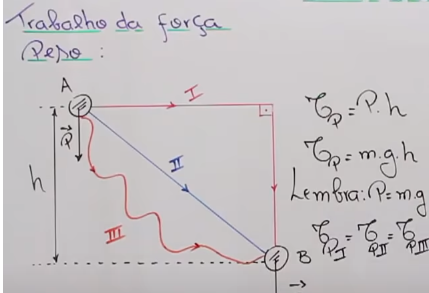 Trabalho da força
Peso:
A
I
P
h
II
III
B
𝒯P = P.h
𝒯P = m.g.h
Lembra: P = m.g
𝒯PI = 𝒯PII = 𝒯PIII